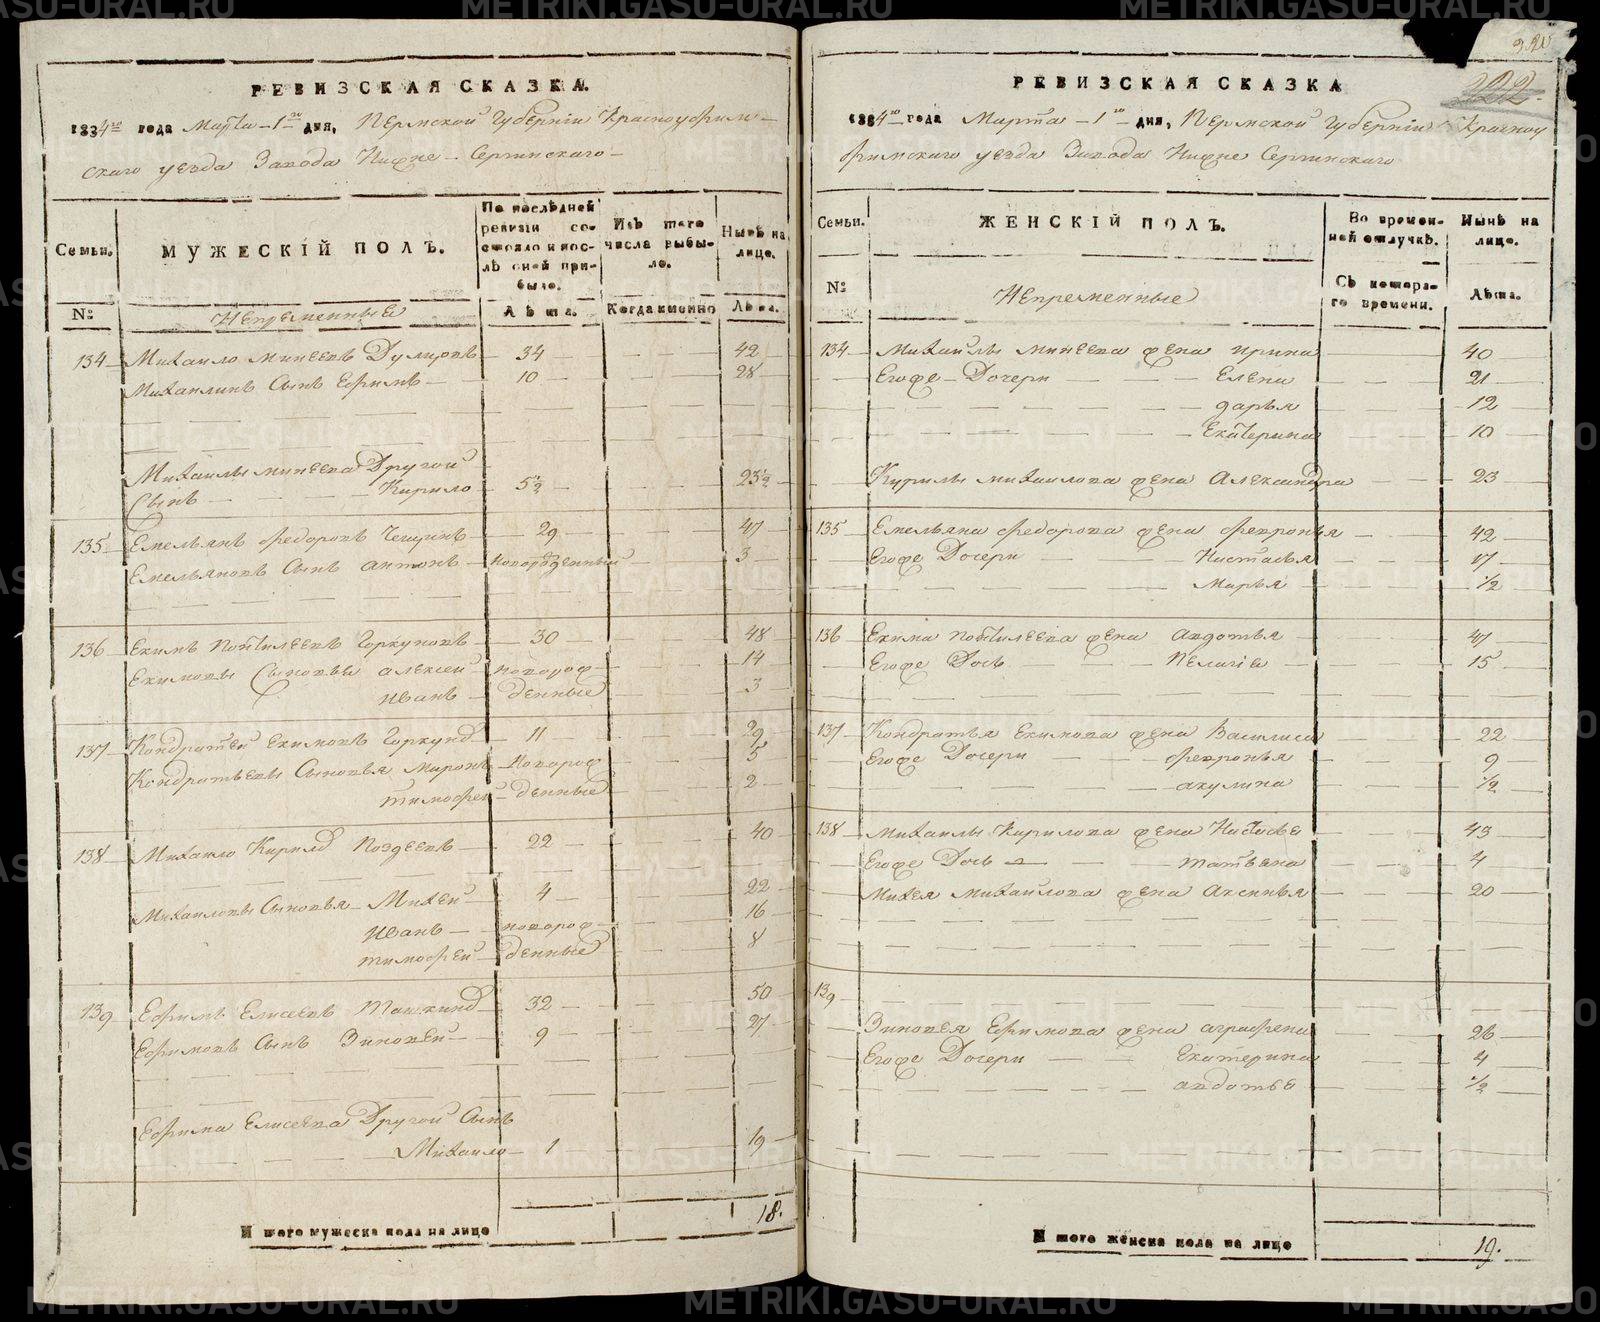 РЕВИЗСКАЯ СКАЗКА.
1834го года Марта 1го дня, Пермской Губернiи Красноуфим-
скаго уезда Завода Нижне-Сергинскаго
Семьи.
МУЖЕСКIЙ ПОЛЪ.
По послѣдней ревизiи состояло и послѣ оной прибыло.
Изъ того числа выбыло.
Нынѣ на лице.
№
Непременные
Лѣта.
Когда именно
Лѣта.
134 Михаило Минеевъ 34 42
Михаиловъ Сынъ Ефимъ 10 28
Михаилы Минеева Другой
Сынъ Кирило 5½ 23½
135 Емельянъ Федоровъ 29 47
Емельяновъ Сынъ Антонъ новорожденный 3
136 Екимъ Горкуновъ 30 48
Екимовы Сыновья Алексей новорож- 14
Иванъ денные 3
137 Кондратей Екимовъ 11 29
Кондратьевы Сыновья Миронъ новорож 5
Тимофей денные 2
138 Михаило Кирилов Поздеевъ 22 40
Михаиловы Сыновья Михей 4 22
Иванъ новорож 16
Тимофей денные 8
139 Ефимъ Елисеевъ 32 50
Ефимовъ Сынъ Зиновей 9 27
Ефима Елисеева Другой Сынъ
Михаило 1 19
Итого мужеска пола на лице 18.
220
222.
РЕВИЗСКАЯ СКАЗКА
1834го года Марта 1го дня, Пермской Губернiи Красноу
фимскаго уезда Завода Нижне Сергинскаго
Семьи.
ЖЕНСКIЙ ПОЛЪ.
Во временной отлучкѣ.
Нынѣ на лице.
№
Непременные
Съ котораго времени.
Лѣта.
134 Михайлы Минеева жена Ирина 40
Егоже Дочери Елена 21
Дарья 12
Екатерина 10
Кирилы Михаилова жена Александра 23
135 Емельяна Федорова жена Февронья 42
Егоже Дочери Настасья 17
Марья ½
136 Екима жена Авдотья 47
Егоже Дочь Пелагiя 15
137 Кондратья Екимова жена Василиса 22
Егоже Дочери Февронья 9
Акулина ½
138 Михаилы Кирилова жена 43
Егоже Дочь Татьяна 4
Михея Михайлова жена Аксинья 20
139
Зиновея Ефимова жена Аграфена 26
Егоже Дочери Екатерина 4
Авдотья ½
Итого женска пола на лице 19.
METRIKI.GASU-URAL.RU